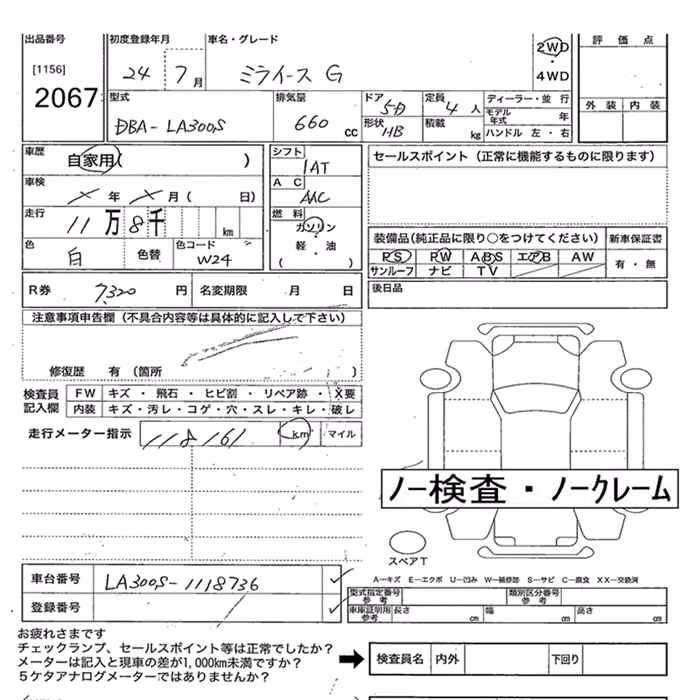 出品番号 初度登録年月 車名・グレード 評価点
[1156] 2067 24 7月 ミライース G 2WD・4WD
型式 排気量 ドア 5D 定員 4人 ディーラー・並行 外装 内装
DBA-LA300S 660cc 形状 HB 積載 kg モデル年式 年
ハンドル 左・右
車歴 自家用( ) シフト 1AT セールスポイント（正常に機能するものに限ります）
車検 ×年×月( 日) AC AAC
走行 11万8千 km 燃料 ガソリン
軽・油
( )
色 白 色替 色コード W24
装備品(純正品に限り○をつけてください) 新車保証書
PS PW ABS エアB AW 有・無
サンルーフ ナビ TV
R券 7,320円 名変期限 月 日 後日品
注意事項申告欄（不具合内容等は具体的に記入して下さい）
修復歴 有（箇所 ）
検査員記入欄 FW キズ・飛石・ヒビ割・リペア跡・X要
内装 キズ・汚レ・コゲ・穴・スレ・キレ・破レ
走行メーター指示 118161 km マイル
ノー検査・ノークレーム
スペアT
A－キズ E－エクボ U－凹み W－補修跡 S－サビ C－腐食 XX－交換済
車台番号 LA300S-1118736
型式指定番号参考 類別区分番号参考
登録番号 車庫証明用参考 長さ cm 幅 cm 高さ cm
お疲れさまです
チェックランプ、セールスポイント等は正常でしたか？
メーターは記入と現車の差が1,000km未満ですか？
5ケタアナログメーターではありませんか？
➡ 検査員名 内外 下回り